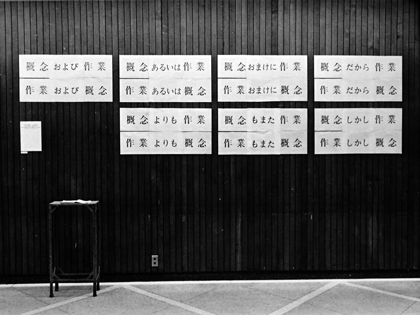 概念 および 作業
作業 および 概念
概念 あるいは 作業
作業 あるいは 概念
概念 おまけに 作業
作業 おまけに 概念
概念 だから 作業
作業 だから 概念
概念 よりも 作業
作業 よりも 概念
概念 もまた 作業
作業 もまた 概念
概念 しかし 作業
作業 しかし 概念